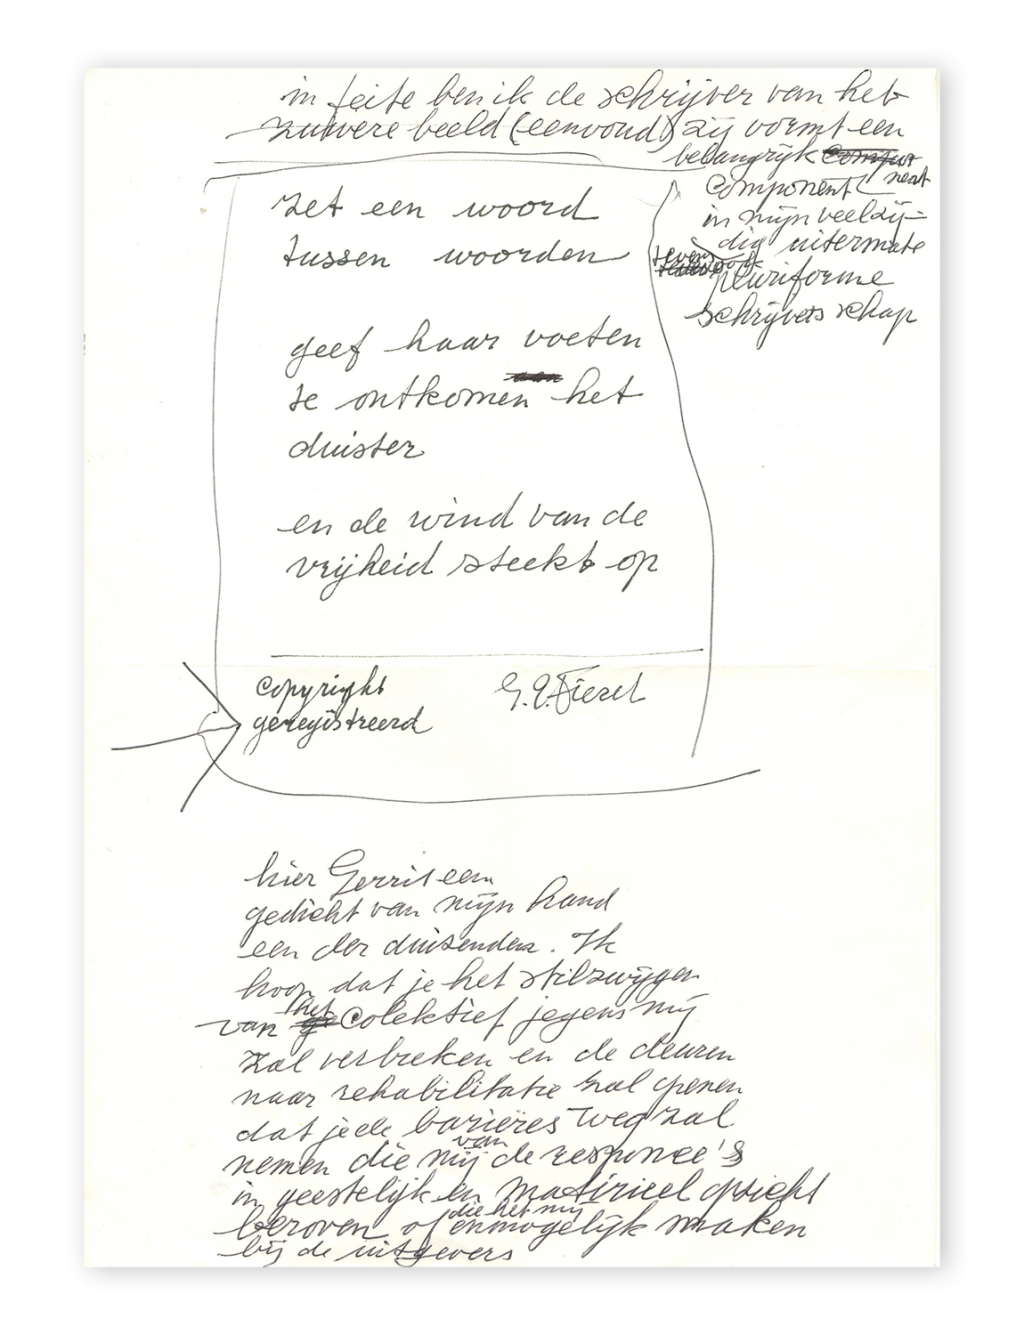 in feite ben ik de schrijver van het
zuivere beeld (eenvoud) zij vormt een
belangrijk
component
in mijn veelzij-
dig uitermate
tevens
pluriforme
schrijvers schap
zet een woord
tussen woorden
geef haar voeten
te ontkomen het
duister
en de wind van de
vrijheid steekt op
copyright
geregistreerd
G.P.Fieret
hier Gerrit een
gedicht van mijn hand
een der duizenden. Ik
hoop dat je het stilzwijgen
van het Colektief jegens mij
zal verbreken en de deuren
naar rehabilitatie zal openen
dat je de barières weg zal
nemen die mij van de responce's
in geestelijk en matirieel opzicht
beroven of die het mij onmogelijk maken
bij de uitgevers